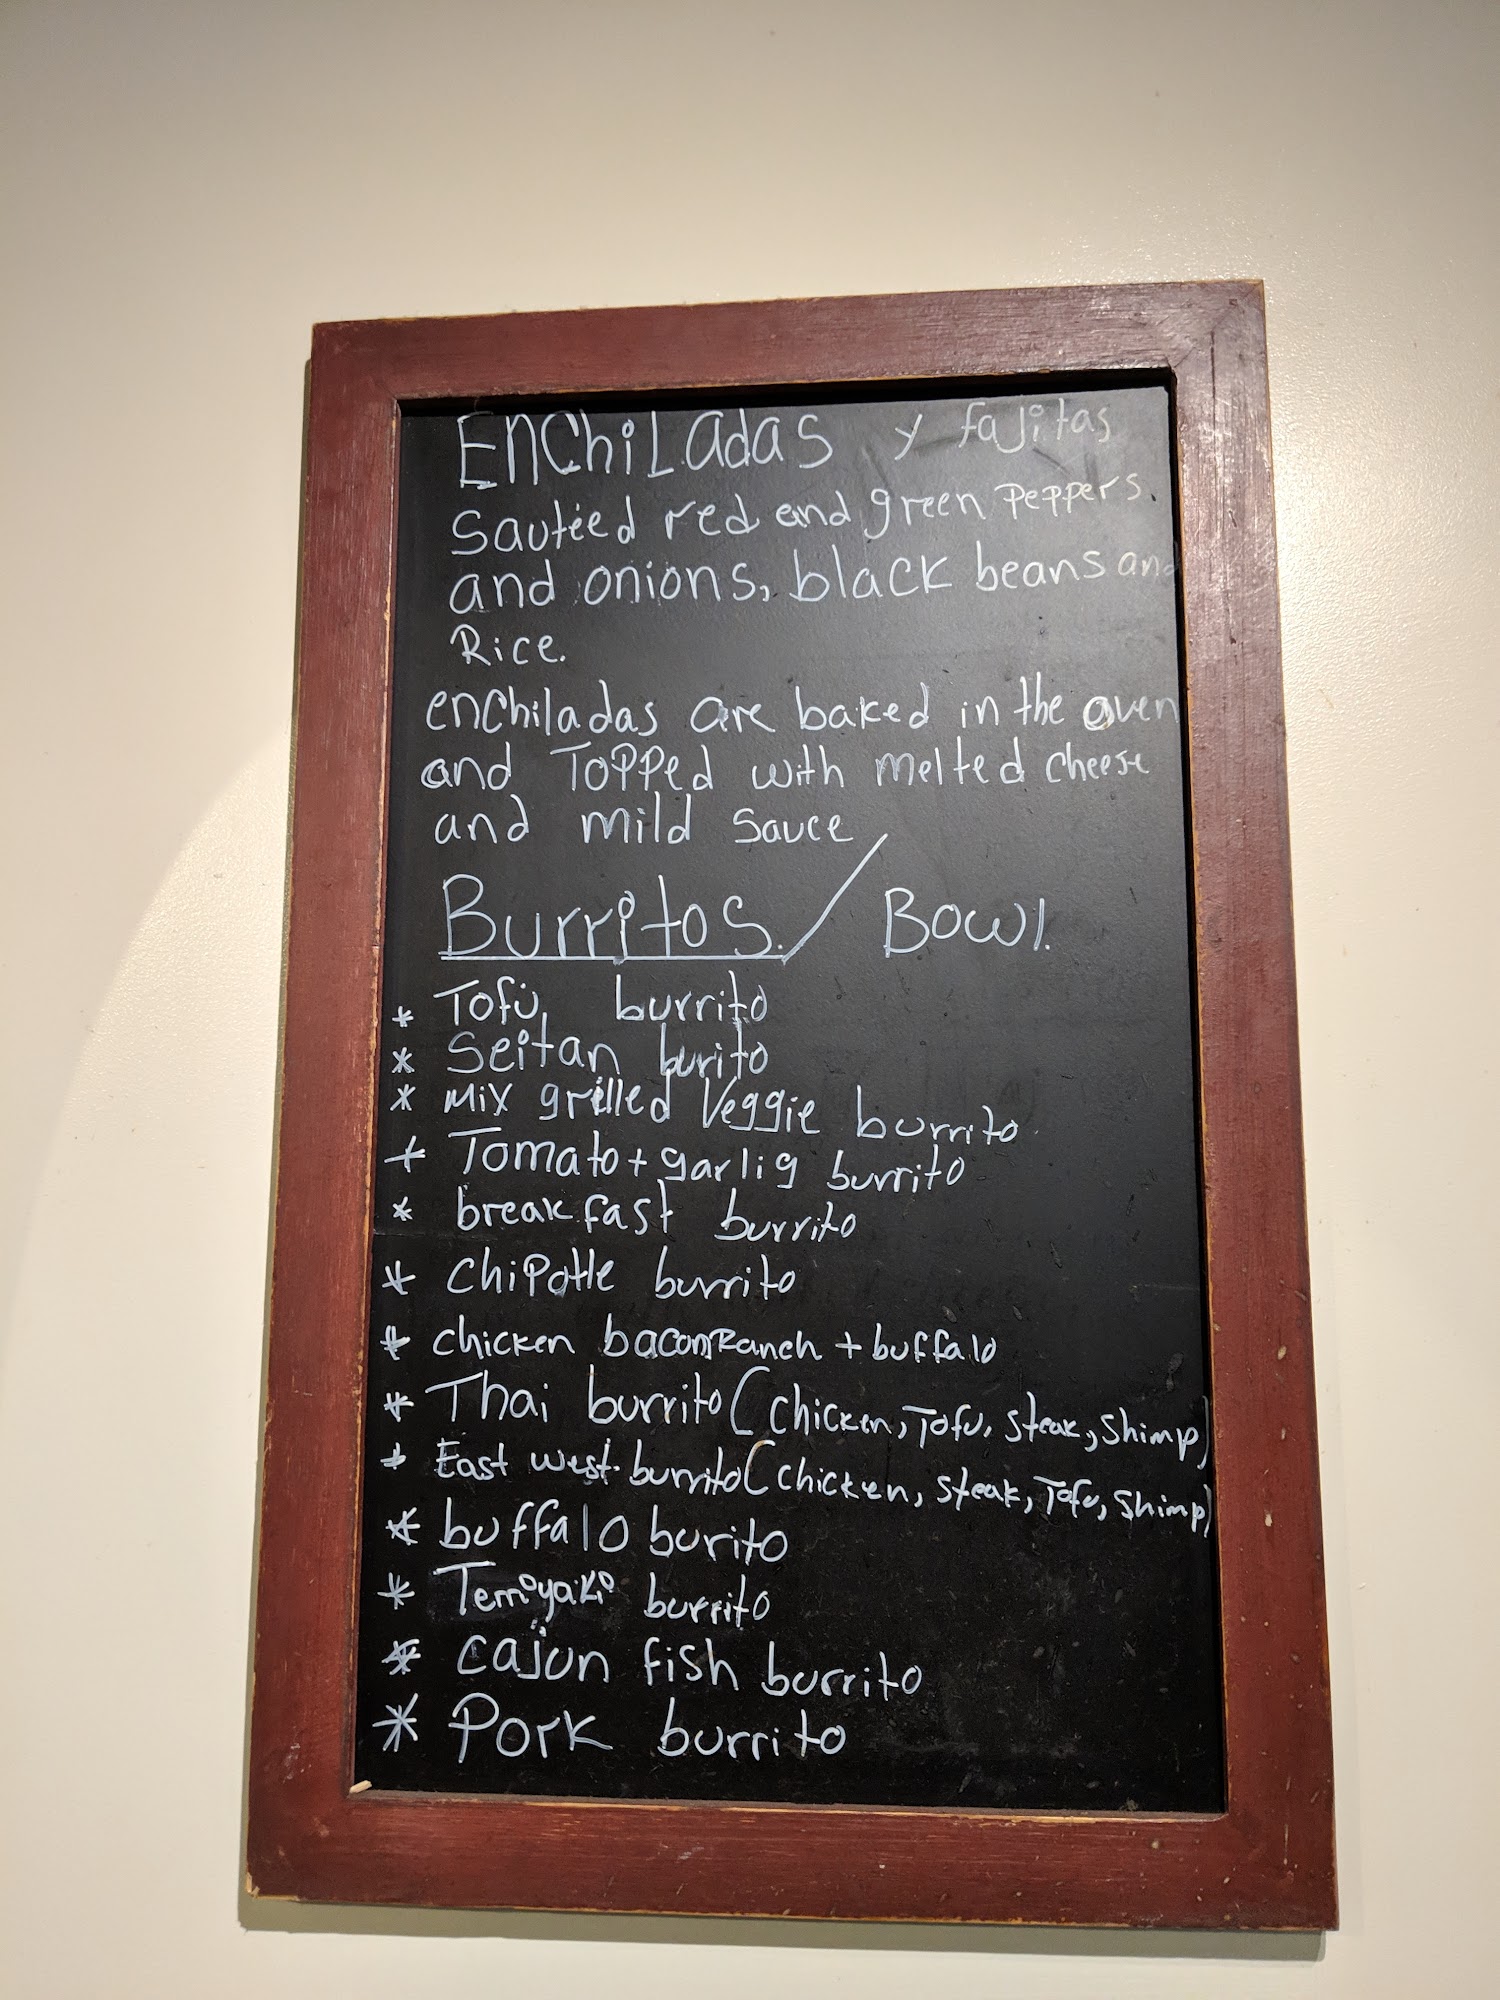 EnchiLadas y fajitas
Sauteed red and green Peppers.
and onions, black beans and
Rice.
enchiladas are baked in the oven
and Topped with melted cheese
and mild sauce
Burritos / Bowl.
* Tofu burrito
* Seitan burito
* Mix grilled Veggie burrito
* Tomato + garlig burrito
* breakfast burrito
* Chipotle burrito
* chicken bacon Ranch + buffalo
* Thai burrito (chicken, Tofu, steak, shimp)
* East west burrito (chicken, steak, Tofu, shimp)
* buffalo burito
* Terriyaki burrito
* cajun fish burrito
* Pork burrito